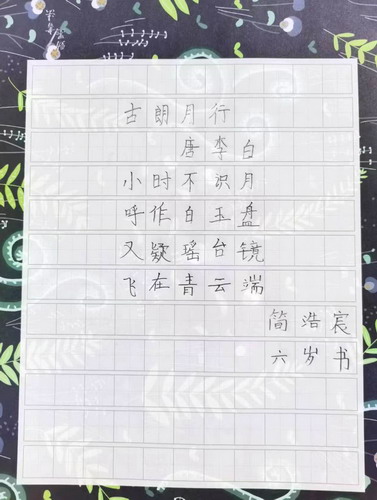 古朗月行
唐李白
小时不识月
呼作白玉盘
又疑瑶台镜
飞在青云端
简浩宸
六岁书